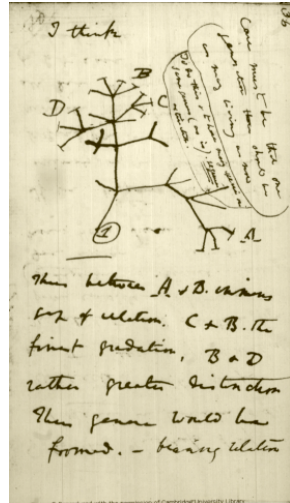 36
I think
Case must be that one
generation then should be
as many living as now
To do this & to have many species in
same genus (as is) requires
extinction
D
B
C
A
1
Thus between A & B. immens
gap of relation. C & B. the
finest gradation, B & D
rather greater distinction
Thus genera would be
formed. — bearing relation